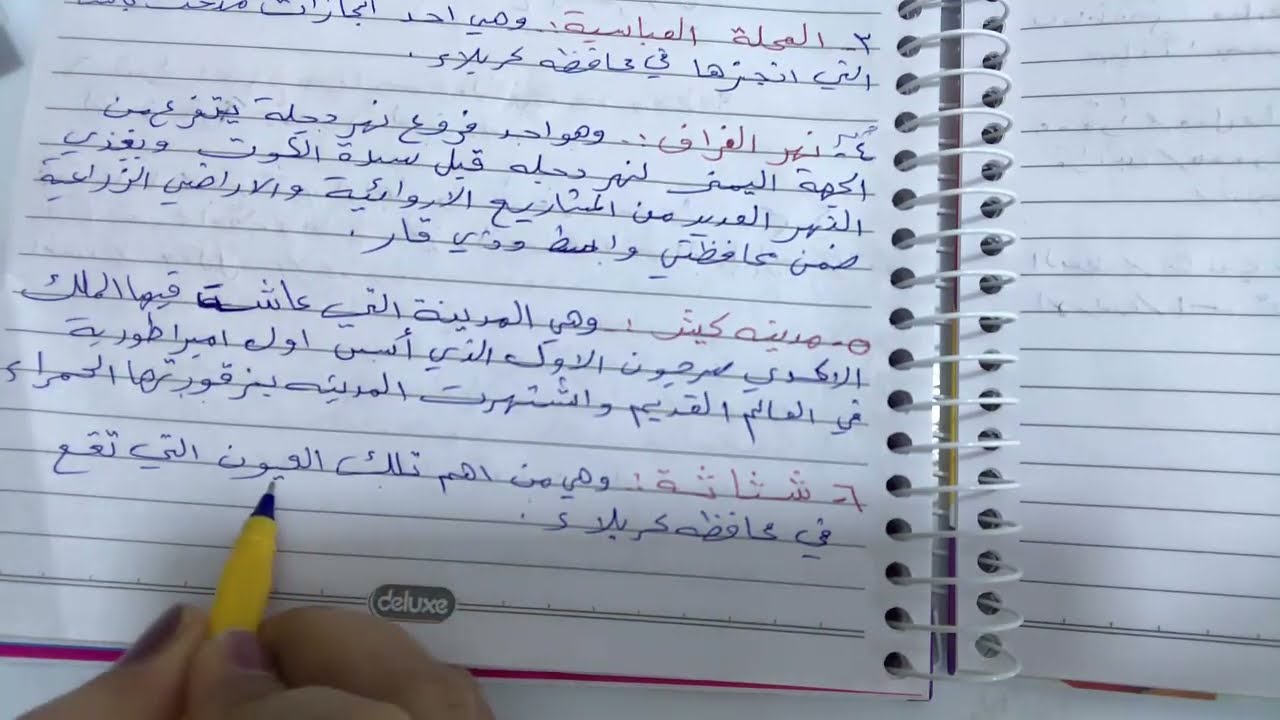 ٣- العجلة العباسية: وهي احد انجازات
التي انجزها في محافظة كربلاء.
٤- نهر الغراف: وهو احد فروع نهر دجلة يتفرع من
الجهة اليمنى لنهر دجله قبل سدة الكوت ويغذي
النهر العديد من المشاريع الاروائية والاراضي الزراعية
ضمن محافظتي واسط وذي قار.
٥- مدينه كيش: وهي المدينة التي عاشت فيها الملك
الاكدي سرجون الاول الذي أسس اول امبراطورية
في العالم القديم واشتهرت المدينه بزقورتها الحمراء
٦- شثاثة: وهي من اهم تلك العيون التي تقع
في محافظه كربلاء.
deluxe